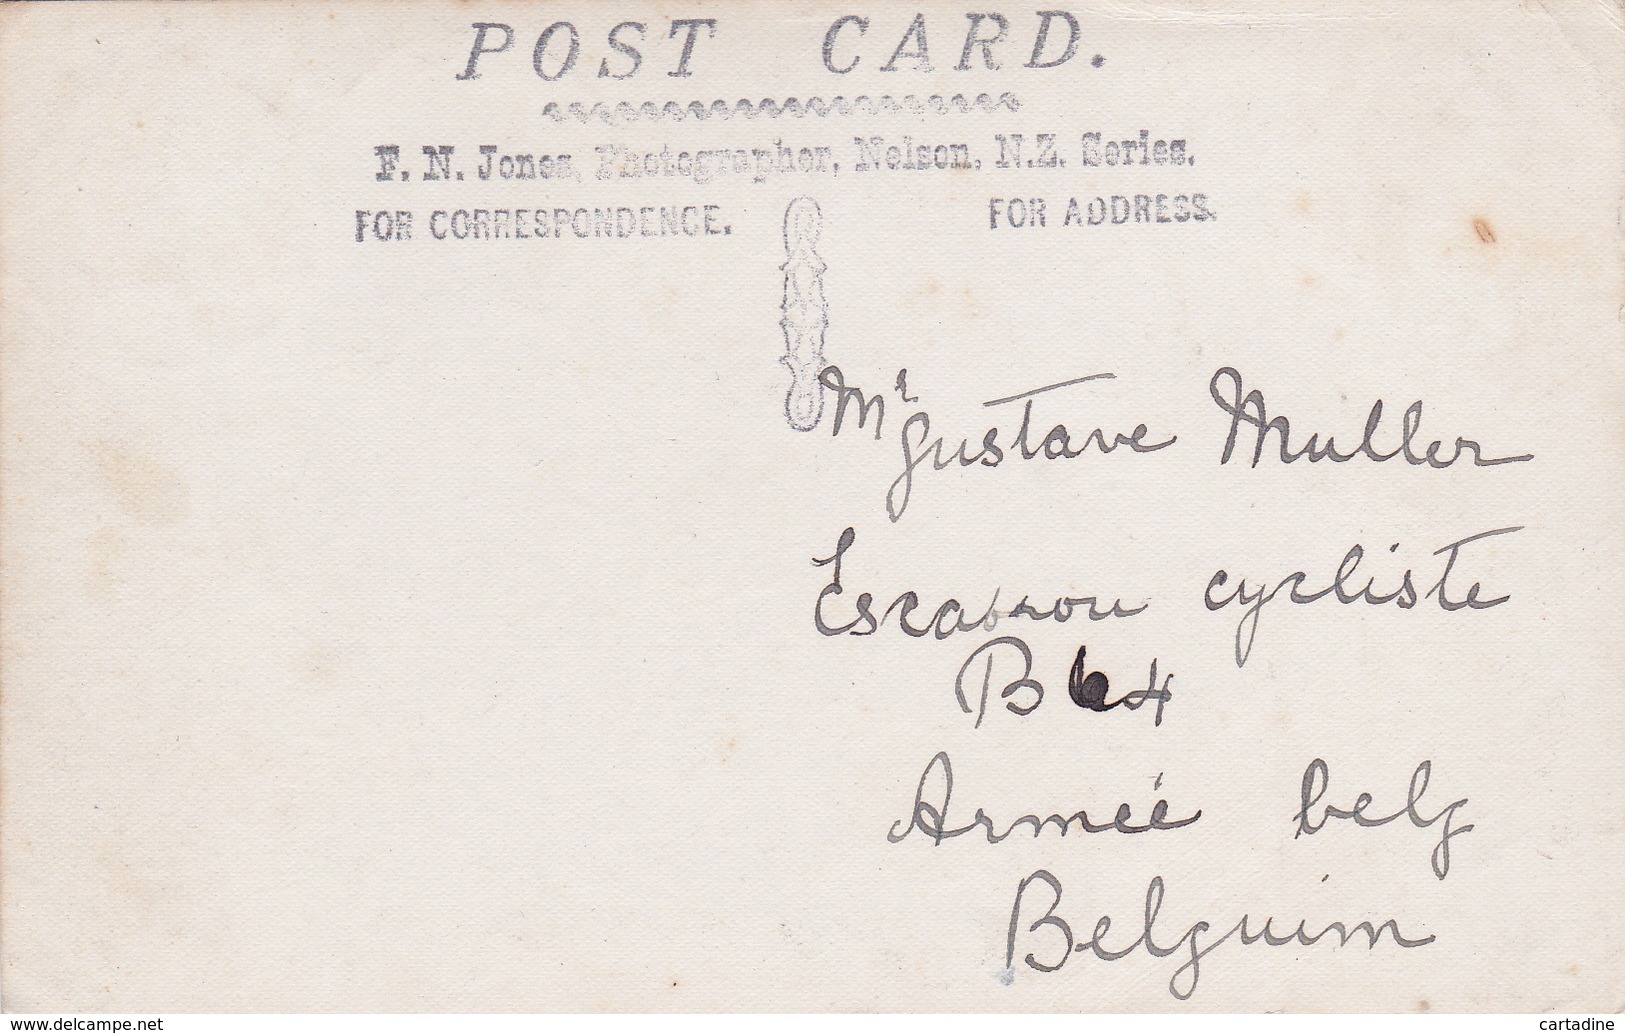 POST CARD.
F. N. Jones, Photographer, Nelson, N.Z. Series.
FOR CORRESPONDENCE.
FOR ADDRESS.
Mr Gustave Muller
Escabron cycliste
B 64
Armée belg
Belguim
www.delcampe.net
cartadine